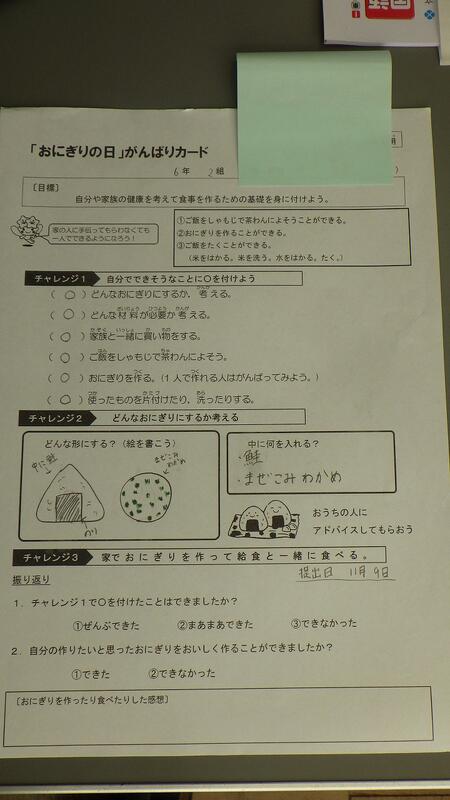 「おにぎりの日」がんばりカード
6年 2組 )
〔目標〕
自分や家族の健康を考えて食事を作るための基礎を身に付けよう。
家の人に手伝ってもらわなくても
一人でできるようになろう!
①ご飯をしゃもじで茶わんによそうことができる。
②おにぎりを作ることができる。
③ご飯をたくことができる。
(米をはかる。米を洗う。水をはかる。たく。)
チャレンジ1 自分でできそうなことに○を付けよう
( ○ )どんなおにぎりにするか、考える。
( ○ )どんな材料が必要か考える。
( ○ )家族と一緒に買い物をする。
( ○ )ご飯をしゃもじで茶わんによそう。
( ○ )おにぎりを作る。(1人で作れる人はがんばってみよう。)
( ○ )使ったものを片付けたり、洗ったりする。
チャレンジ2 どんなおにぎりにするか考える
どんな形にする?(絵を書こう)
中に鮭
まぜこみ
わかめ
のり
中に何を入れる?
・鮭
・まぜこみわかめ
おうちの人に
アドバイスしてもらおう
チャレンジ3 家でおにぎりを作って給食と一緒に食べる。
振り返り
提出日 11月9日
1.チャレンジ1で○を付けたことはできましたか?
①ぜんぶできた ②まあまあできた ③できなかった
2.自分の作りたいと思ったおにぎりをおいしく作ることができましたか?
①できた ②できなかった
〔おにぎりを作ったり食べたりした感想〕